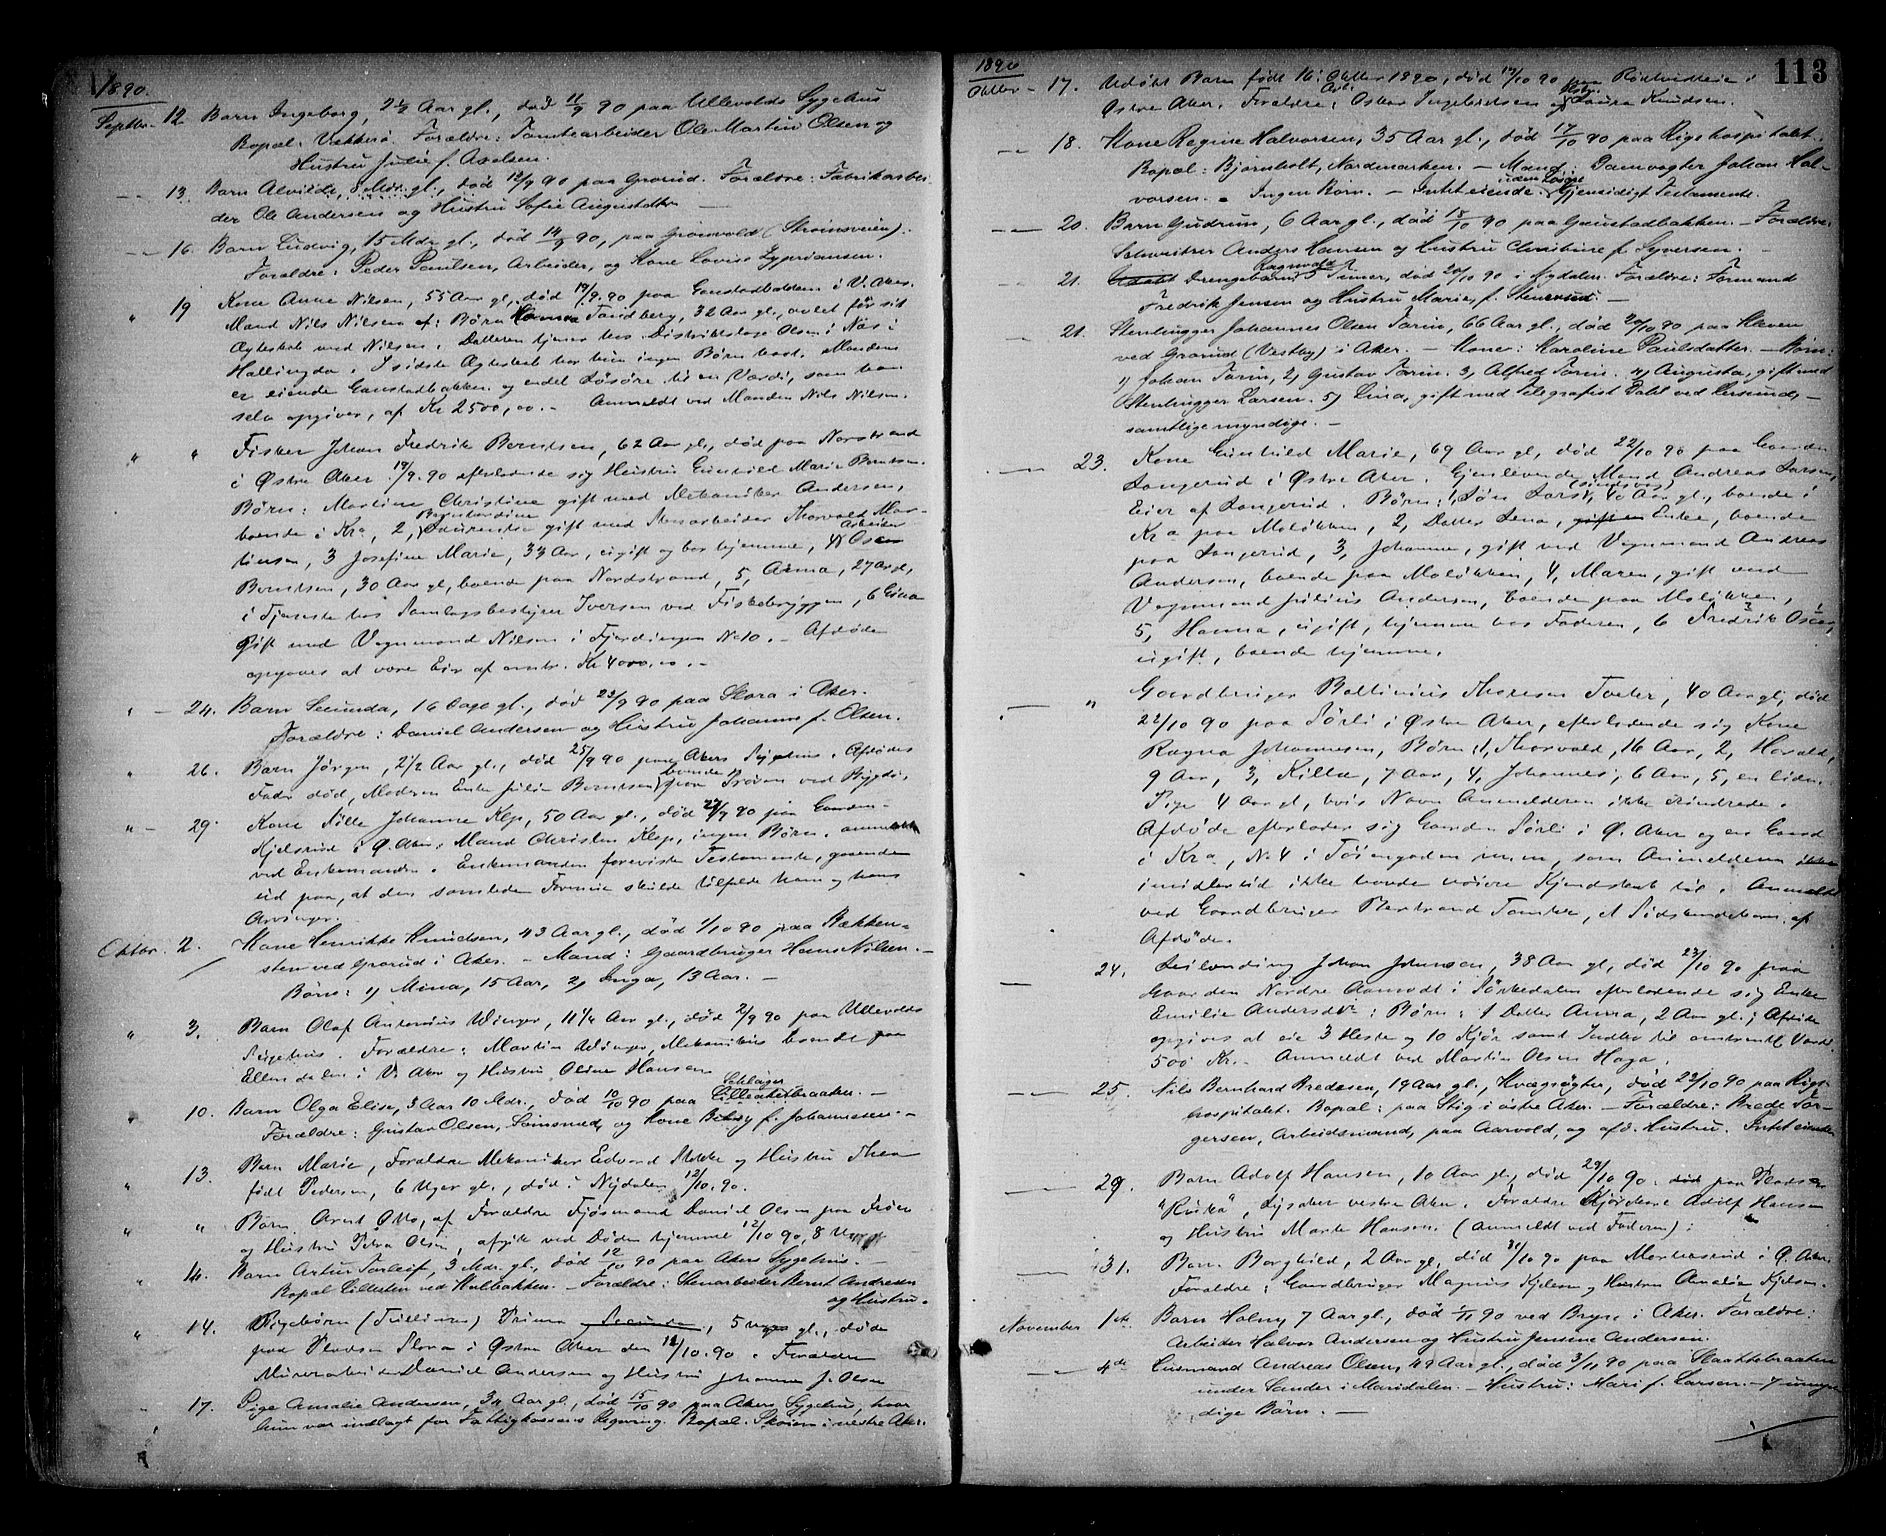 1890.
Septbr. 12. Barn Ingeborg, 2 1/2 Aar gl., død 11/9 90 paa Ullevolds Sygehus
Bopæl: Vækkerø. Forældre: Tomtearbeider Ole Martin Olsen og
Hustru Julie f. Axelsen.
— 13. Barn Alvilde, 8 Mdr. gl., død 12/9 90 paa Grorud. Forældre: Fabrikarbei-
der Ole Andersen og Hustru Sofie Augustdtr.
— 16. Barn Ludvig, 15 Mdr gl., død 14/9 90, paa Grønvold (Strømsveien).
Forældre: Peder Paulsen, Arbeider, og Kone Lovise Zypriansen.
" 19 Kone Anne Nilsen, 55 Aar gl., død 19/9.90 paa Gaustadbakken i V. Aker.
Mand Nils Nilsen af: Børn Hanna Tandberg, 32 Aar gl., avlet før sit
Ægteskab med Nilsen. Datteren tjener hos Distriktslæge Olsen i Næs i
Hallingdal. I sidste Ægteskab har hun ingen Børn havt. Manden
er eiende Gaustadbakken og endel Løsøre til en Værdi, som han
selv opgiver, af Kr 2500,00. – Anmeldt ved Manden Nils Nilsen.
" " Fisker Johan Fredrik Berntsen, 62 Aar gl., død paa Norstrand
i Østre Aker 19/9.90 efterladende sig Hustru Gunhild Marie Berntsen.
Børn: Martine Christine gift med Mekaniker Andersen,
boende i Kra, 2, Berntsdine Laurentse gift med Stenarbeider Thorvald Mar-
tinsen, 3 Josefine Marie, 33 Aar, ugift og bor hjemme, 4, Arbeider Oscar
Berntsen, 30 Aar gl, boende paa Nordstrand, 5, Anna, 27 Aar,
i Tjeneste hos Samlagsbestyrer Iversen ved Fiskebryggen, 6 Gina
Gift med Vognmand Nilsen i Fjerdingen No 10. – Afdøde
opgives at være Eier af omtr. Kr 4000.00. –
" — 24. Barn Secunda, 16 Dage gl., død 23/9 90 paa Flora i Aker.
Forældre: Daniel Andersen og Hustru Johanne f. Olsen.
" 26. Barn Jørgen, 2 1/2 Aar gl., død 25/9 90 paa Akers Sygehus. Afdødes
Fader død, Moderen Enke Julie Berntsen boende paa Frøen ved Bygdø.
" — 29. Kone Sille Johanne Klep, 50 Aar gl., død 27/9 90 paa Gaarden
Kjelsrud i Ø. Aker. Mand Christen Klep, ingen Børn. anmeldt
ved Enkemanden. Enkemanden foreviste Testamente, gaaende
ud paa, at den samlede Formue skulde tilfalde ham og hans
Arvinger.
Oktbr. 2. Kone Henrikke Knudsen, 43 Aar gl., død 1/10 90 paa Bækken-
sten ved Grorud i Aker. – Mand: Gaardbruger Hans Nilsen. –
Børn: 1) Mina, 15 Aar, 2) Inga, 13 Aar. –
" 3. Barn Olaf Antonius Winger, 11 1/4 Aar gl., død 2/9 90 paa Ullevolds
Sygehus. Forældre: Martin Winger, Mekanikus boende paa
Ellendalen i V. Aker og Hustru Oline Hansen
" 10. Barn Olga Elise, 3 Aar 10 Mdr., død 10/10 90 paa Lilleakerbraaten. –
Forældre: Gustav Olsen, Sømsmed, og Kone Betsy f. Johannesen. –
" 13. Barn Marie, Forældre Mekaniker Edvard Stokke og Hustru Thea
født Pedersen, 6 Uger gl., død i Nydalen 12/10.90.
" " Barn Arnt Otto, af Forældre Fjøsmand Daniel Olsen paa Frøen
og Hustru Petra Olsen, afgik ved Døden hjemme 12/10 90, 8 Uger
" 14. Barn Artur Torleif, 3 Mdr. gl., død 12/10 90 paa Akers Sygehus. –
Bopæl Lillesten ved Hulbakken. – Forældre: Stenarbeider Bernt Andresen
og Hustru.
" 14. Pigebørn (Trillinger) Prima og Secunda, 5 uger gl., døde
paa Pladsen Flora i Østre Aker den 12/10.90. Forældre
Murerarbeider Daniel Andersen og Hustru Johanne f. Olsen
17. Pige Amalie Andersen, 34 Aar gl., død 15/10 90 paa Akers Sygehus, hvor
hun var indlagt for Fattigkassens Regning. Bopæl: Skøien i vestre Aker.
113
1890
Oktbr – 17. Udøbt Barn født 16 Oktbr 1890, død 17/10 90 paa Rødtvedteie i
Østre Aker. Forældre: Arb. Oskar Ingebretsen og Hstr. Laura Knudsen.
— 18. Kone Regine Halvorsen, 35 Aar gl., død 17/10 90 paa Rigshospitalet.
Bopæl: Bjørnholt, Nordmarken. – Mand: Damvogter Johan Hal-
vorsen. – Ingen Børn. – Intet eiende uden Løsøre. Gjensidigt Testamente.
— 20. Barn Gudrun, 6 Aar gl., død 18/10 90 paa Gaustadbakken. – Forældre:
Schweitzer Anders Hansen og Hustru Christine f. Syversen. –
— 21. Udøbt Drengebarn Ragnvald 5 Timer, død 20/10 90 i Nydalen. Forældre: Formand
Fredrik Jensen og Hustru Marie, f. Stensrud. –
— 21. Stenhugger Johannes Olsen Torin, 66 Aar gl., død 20/10 90 paa Kleven
ved Grorud (Vestby) i Aker. – Kone: Karoline Paulsdatter. – Børn:
1) Johan Torin, 2) Gustav Torin. 3) Alfred Torin. 4) Augusta, gift med
Stenhugger Larsen. 5) Lina, gift med Telegrafist Dahl ved Lersund, –
samtlige myndige. –
— 23. Kone Gunhild Marie, 69 Aar gl, død 22/10 90 paa Gaarden
Langerud i Østre Aker. Gjenlevende Mand Andreas Larsen,
Eier af Langerud. Børn: 1, Søn Lars (sindssvag), 40 Aar gl., boende i
Kra paa Moløkken, 2, Datter Lena, gift en Enke, boende
paa Langerud, 3, Johanne, gift ved Vognmand Andreas
Andersen, boende paa Moløkken, 4, Maren, gift med
Vognmand Julius Andersen, boende paa Moløkken,
5, Hanna, ugift, hjemme hos Faderen, 6 Fredrik Oscar,
ugift, boende hjemme.
— " Gaardbruger Boltinius Thoresen Tveter, 40 Aar gl, død
22/10 90 paa Sørli i Østre Aker, efterladende sig Kone
Ragna Johannesen, Børn: 1, Thorvald, 16 Aar, 2, Harald,
9 Aar, 3, Hilda, 7 Aar, 4, Johannes, 6 Aar, 5, en liden
Pige 4 Aar gl, hvis Navn Anmelderen ikke erindrede.
Afdøde efterlader sig Gaarden Sørli i Ø. Aker og en Gaard
i Kra, No 4 i Tøiengaden m.m., som Anmelderen
imidlertid ikke havde nøiere Kjendskab til. Anmeldt
ved Gaardbruger Bertrand Tomter, et Sødskendebarn af
Afdøde.
— 24. Leilænding Johan Johnsen, 38 Aar gl, død 23/10 90 paa
Gaarden Nordre Aamodt i Sørkedalen efterladende sig Enke
Emilie Andersdtr: Børn: 1 Datter Anna, 2 Aar gl.; Afdøde
opgives at eie 3 Heste og 10 Kjør samt Indbo til omtrentl. Værdi
500 Kr. – Anmeldt ved Martin Olsen Haga.
— 25. Nils Bernhard Bredesen, 19 Aar gl., Kvægrøgter, død 22/10 90 paa Rigs-
hospitalet. Bopæl: paa Stig i østre Aker. – Forældre: Brede Tor-
gersen, Arbeidsmand, paa Aarvold, og afd. Hustru. Intet eiende
— 29. Barn Adolf Hansen, 10 Aar gl., død 29/10 90. død paa Pladsen
"Ruka", Lysaker vestre Aker. Forældre Kjørekarl Adolf Hansen
og Hustru Marte Hansen. (Anmeldt ved Faderen):
— 31. Barn Borghild, 2 Aar gl, død 30/10 90 paa Mortensrud i Ø. Aker.
Forældre: Gaardbruger Magnus Kjelsen og Hustru Amalie Kjelsen.
November 1ste. Barn Holm, 7 Aar gl., død 1/11 90 ved Bryn i Aker. Forældre:
Arbeider Halvor Andersen og Hustru Jensine Andersen.
— 4de Husmand Andreas Olsen, 49 Aar gl., død 3/11 90 paa Slaattebraaten
under Sander i Maridalen. – Hustru: Mari f. Larsen. – 7 umyn-
dige Børn. –